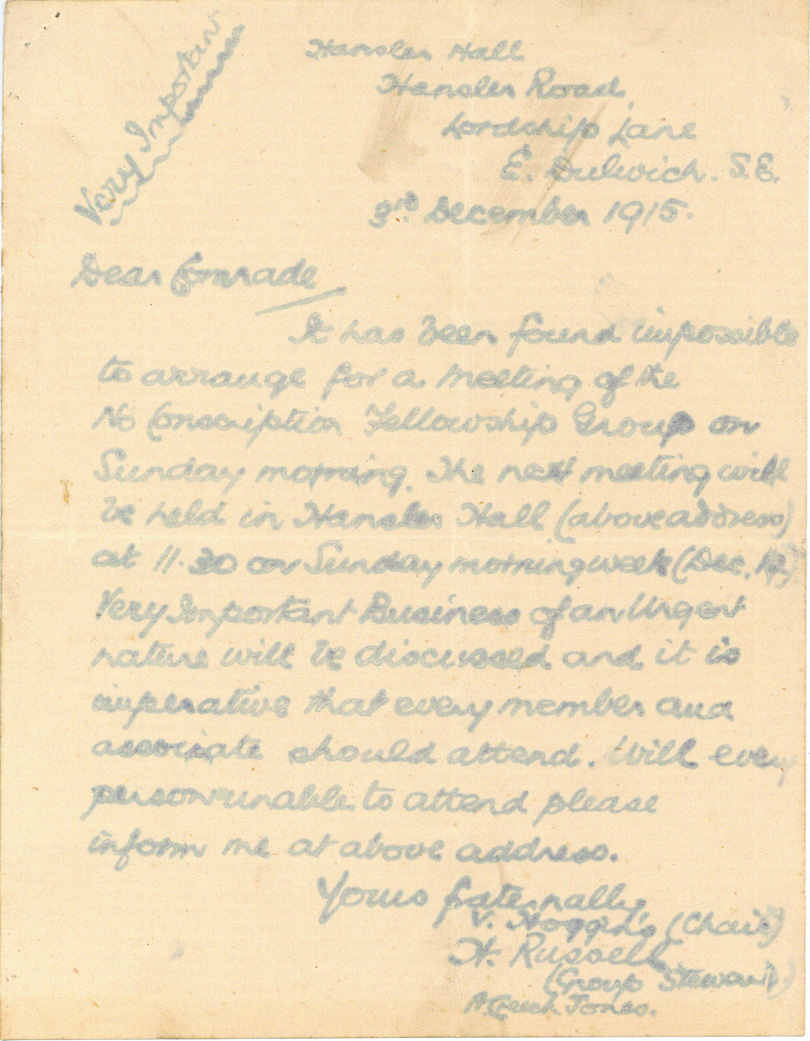 Very Important
Hansler Hall
Hansler Road
Lordship Lane
E. Dulwich. S.E.
3rd December 1915.
Dear Comrade
It has been found impossible
to arrange for a meeting of the
No Conscription Fellowship Group on
Sunday morning. The next meeting will
be held in Hansler Hall (above address)
at 11.30 on Sunday morning week (Dec. 12)
Very Important Business of an Urgent
nature will be discussed and it is
imperative that every member and
associate should attend. Will every
person unable to attend please
inform me at above address.
Yours fraternally
V. (Chair)
H. Russell
(Group Steward)
A Creech Jones.